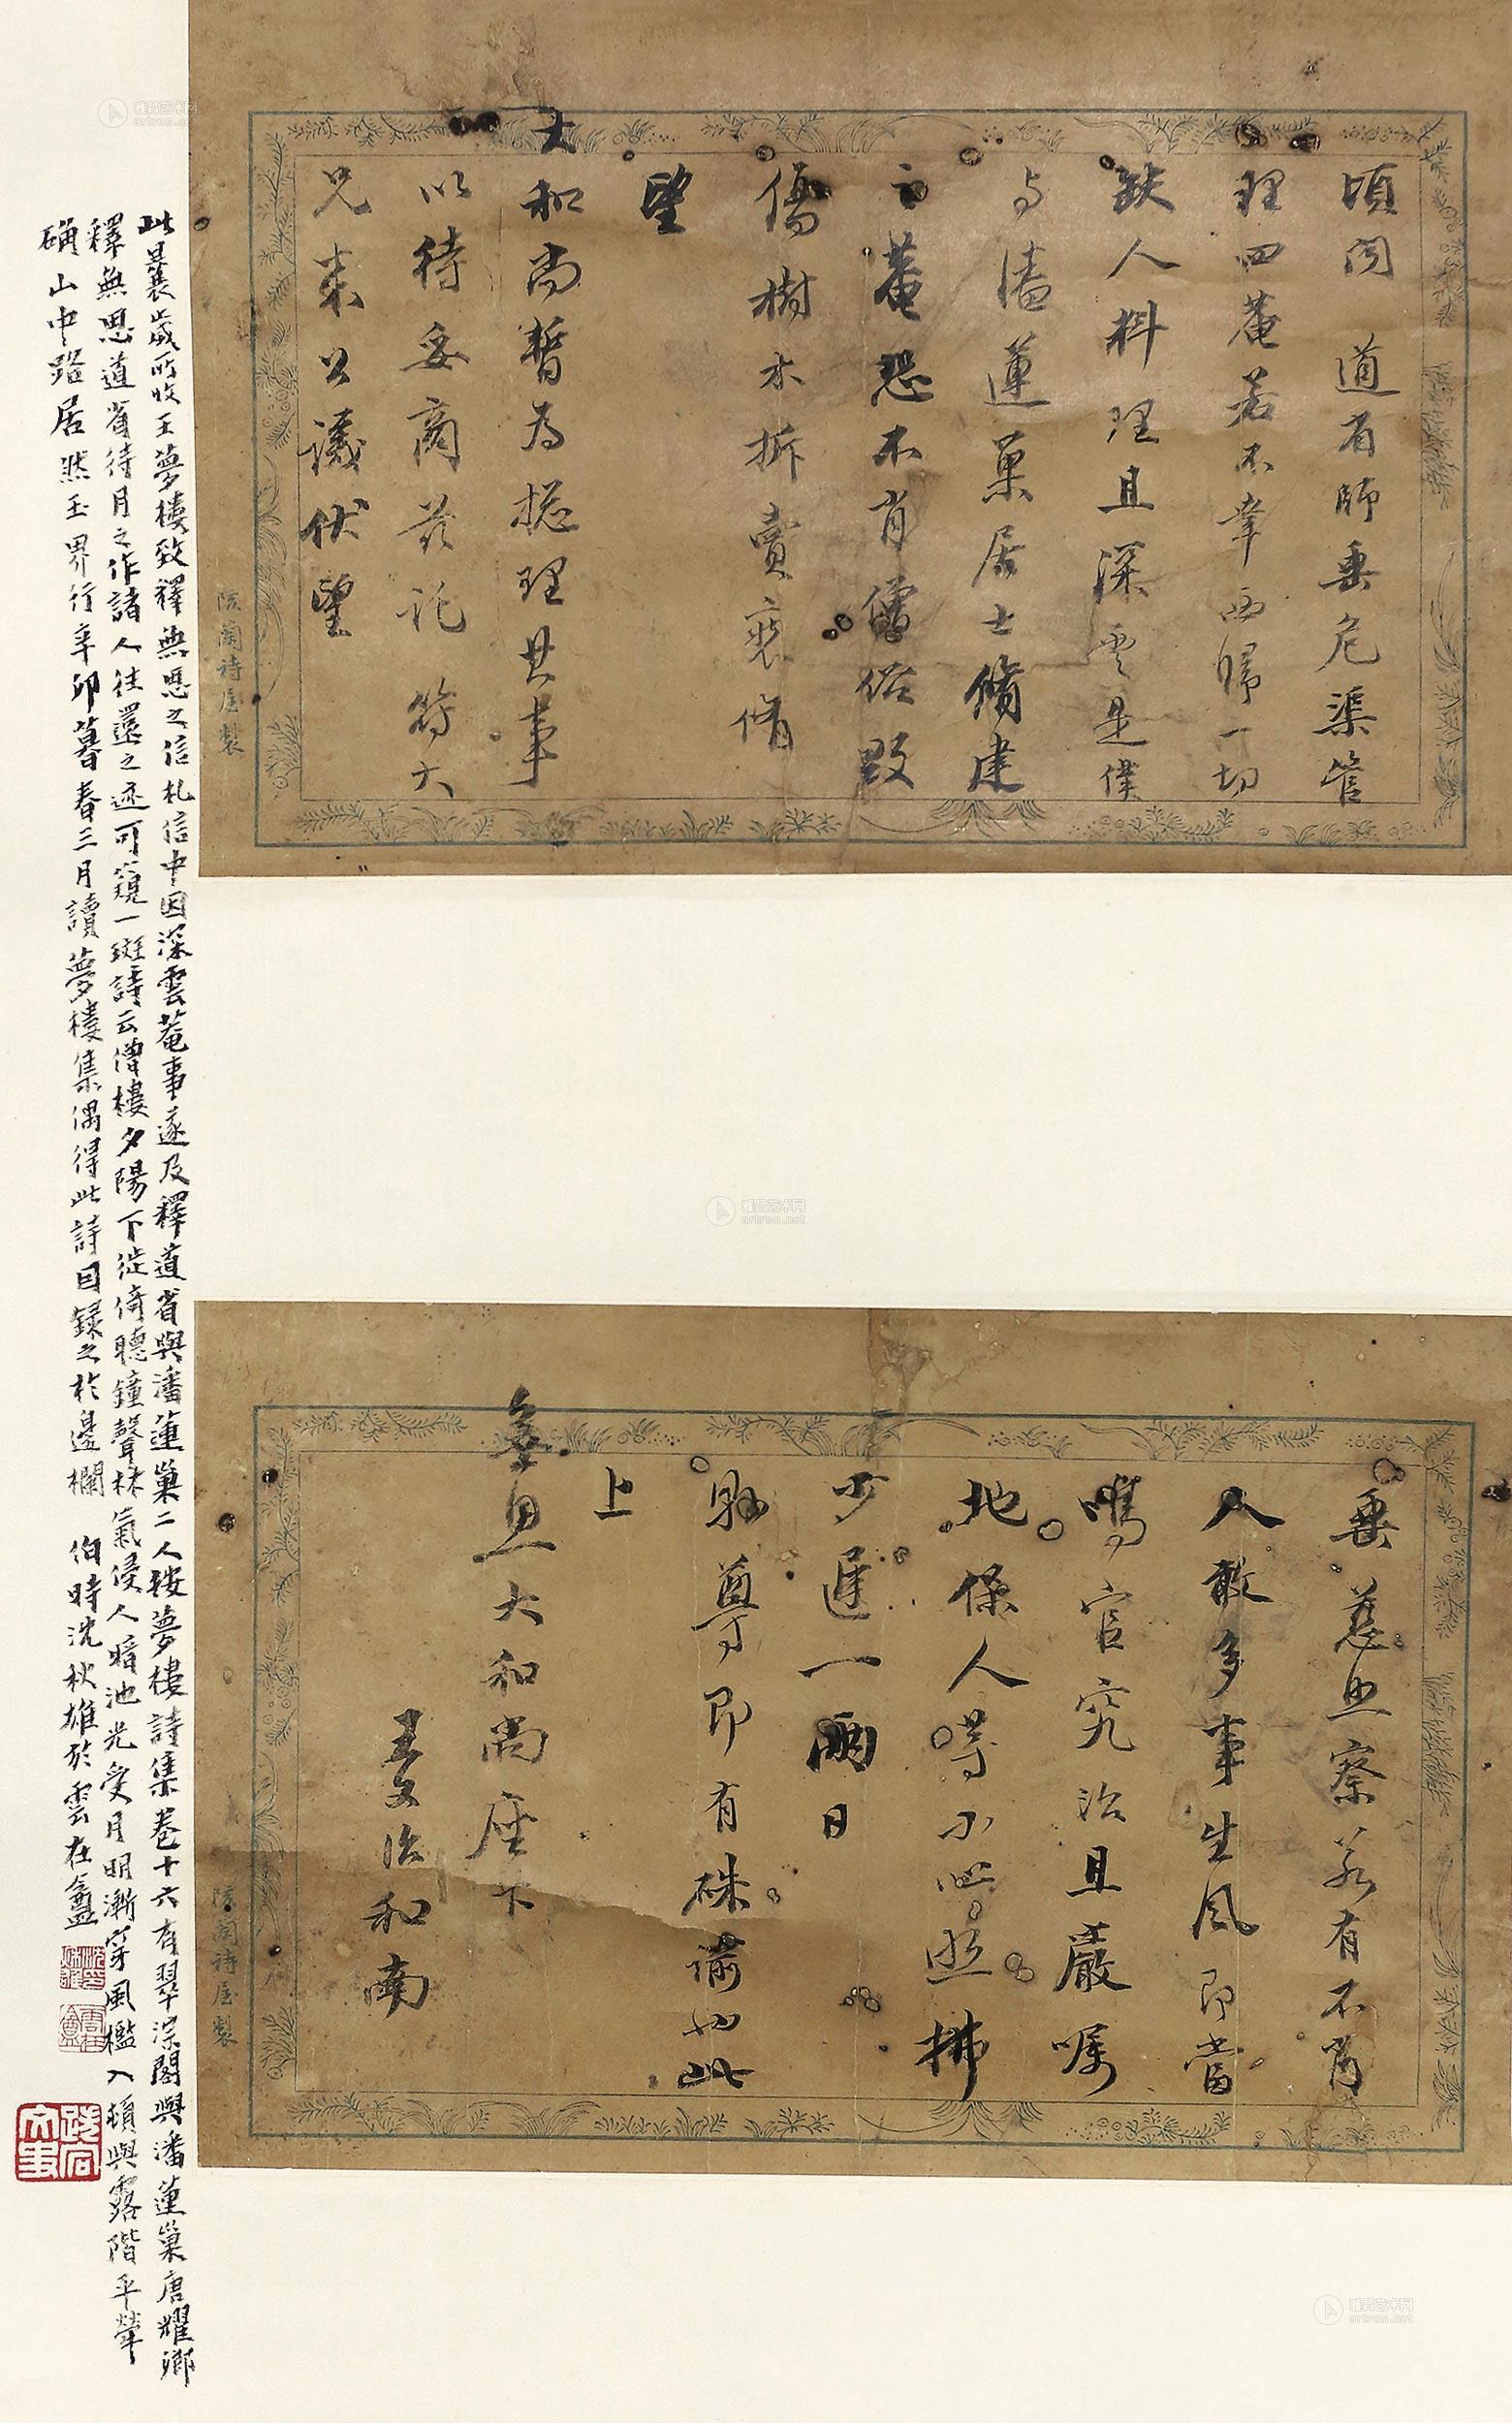 頃闻 道省師垂危渠管
理四菴若不幸西歸一切
缺人料理且深雲是僕
与潘蓮巢居士脩建
之菴恐不肖僧俗毀
傷樹木拆賣裝脩
望
大和尚暫為揔理其事
以待妥商若託 等大
兄来公議伏望
隂蘭詩屋製
垂慈照察若有不肖
人敢多事生風即當
鳴官究治且嚴嘱
地保人等小心照拂
少遲一兩日
縣尊即有硃諭也此
上
無思大和尚座下
王文治和南
隂蘭詩屋製
此曩歲所收王夢樓致釋無思之信札信中因深雲菴事遂及釋道省與潘蓮巢二人按夢樓詩集卷十六有翠淙閣與潘蓮巢唐耀卿
釋無思道省待月之作諸人往還之迹可窺一斑詩云僧樓夕陽下徙倚聽鐘聲林氣侵人暗池光受月明漸穿風檻入頓與露階平犖
确山中路居然玉界行辛卯暮春三月讀夢樓集偶得此詩因録之於邊欄 伯時沈秋雄於雲在盦
雅昌艺术网
artron.net
雅昌艺术网
artron.net
雅昌艺术网
artron.net